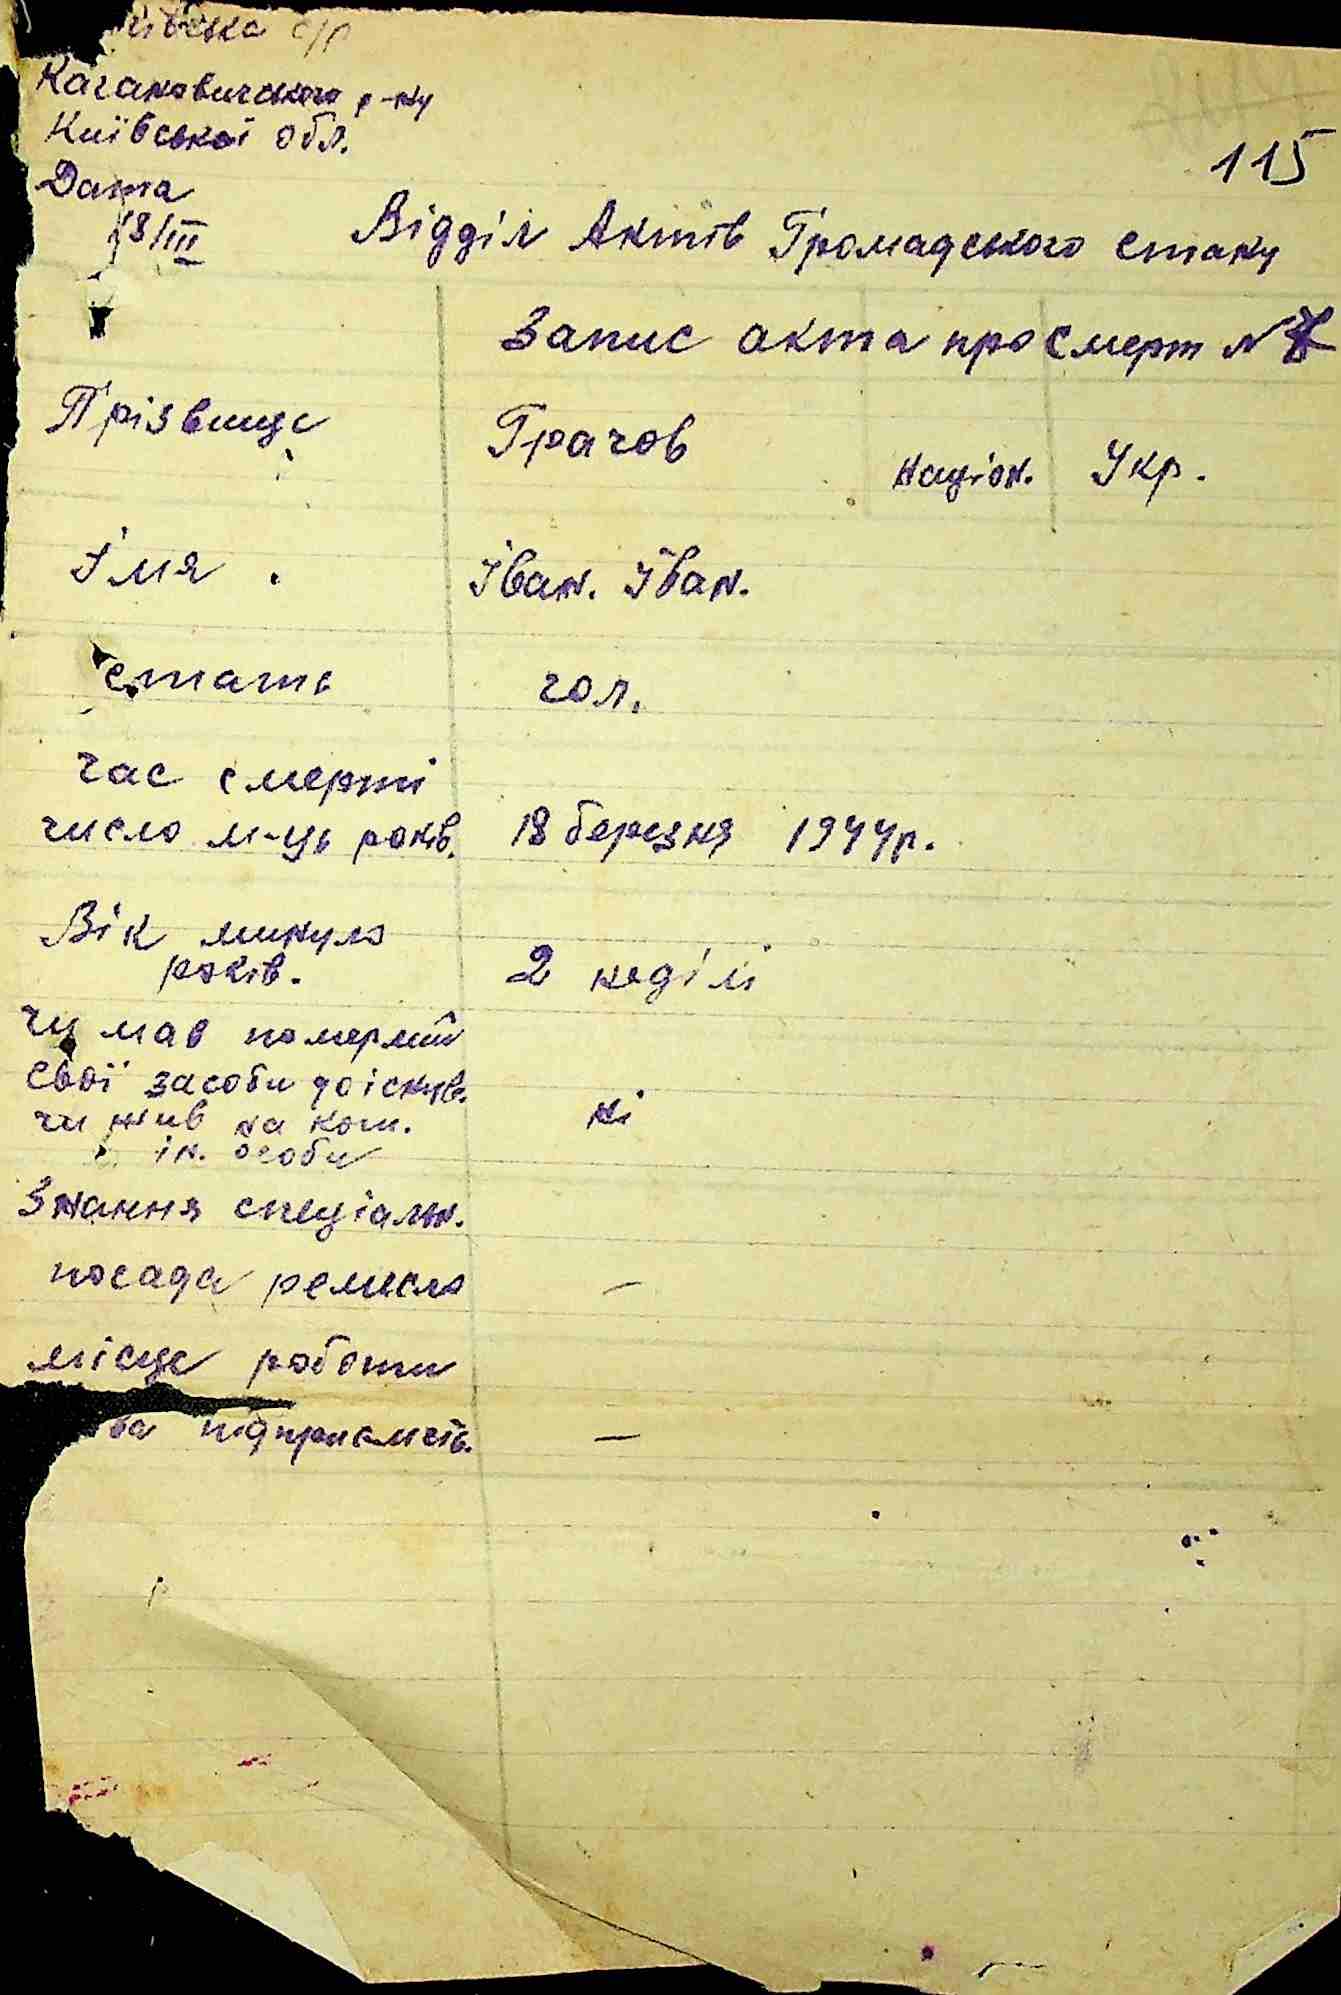 с/р
Кагановичского р-ну
Київської обл.
115
Дата
18/III
Відділ Актів Громадського стану
Запис акта про смерт №
Прізвище Грачов націон. Укр.
Імя. Іван. Іван.
стать чол.
час смерті
число м-ць років. 18 березня 1944р.
Вік минуло
років. 2 неділі
чи мав померлий
свої засоби до існув.
чи жив на кош. ні
ін. особи
Знання спеціальн.
посада ремесло —
місце работи
підприємств. —